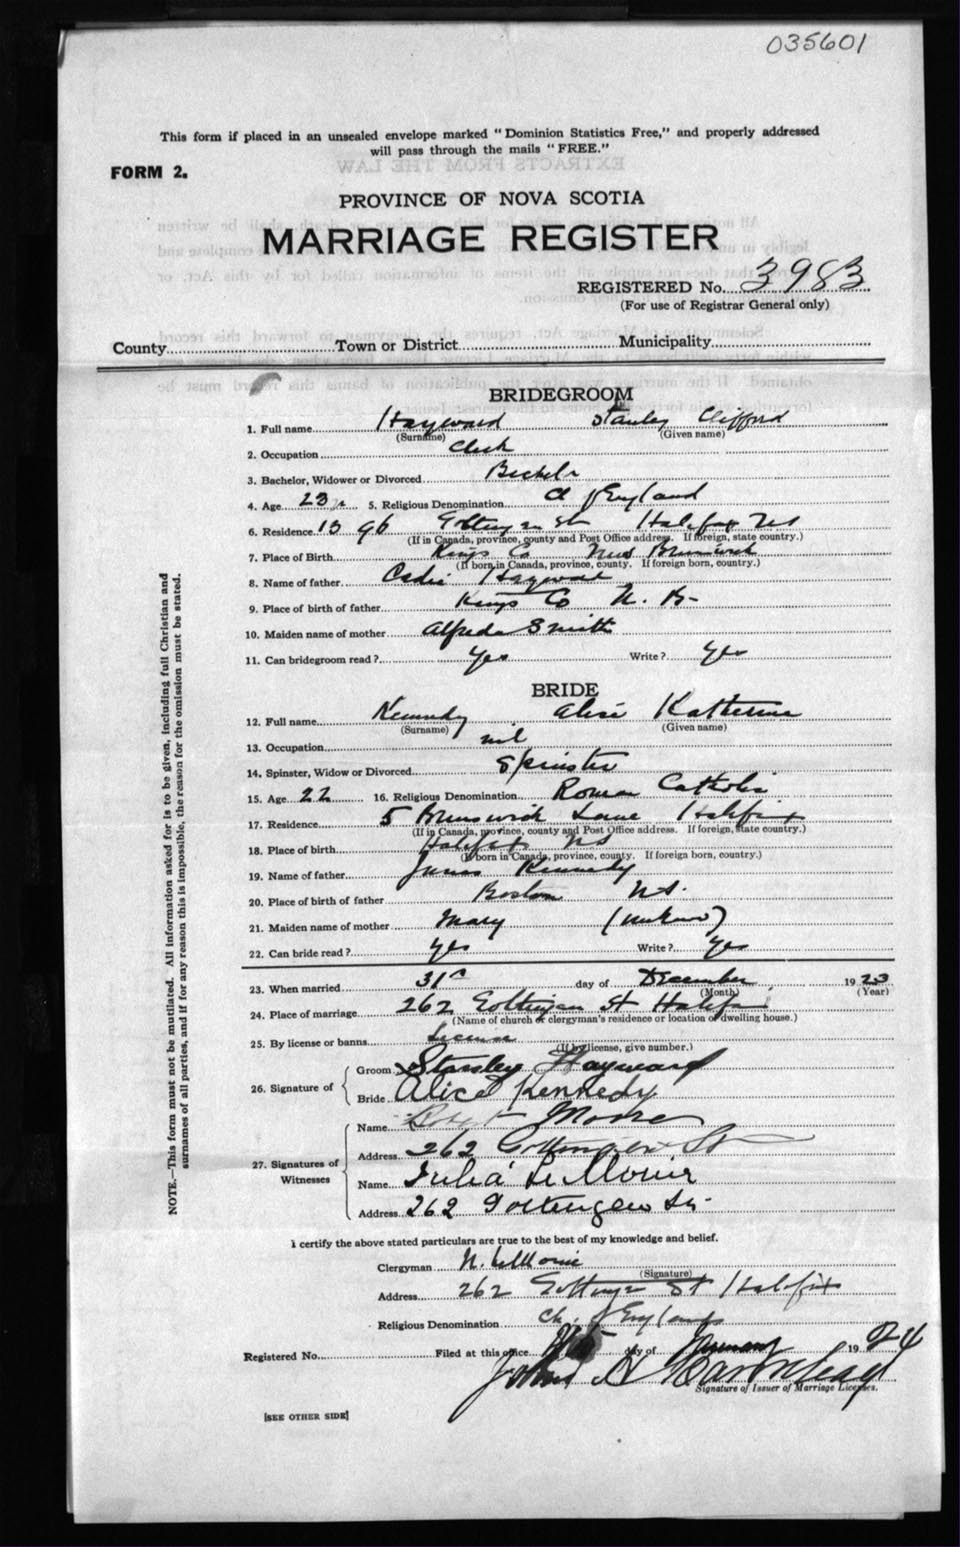 035601
This form if placed in an unsealed envelope marked "Dominion Statistics Free," and properly addressed
will pass through the mails "FREE."
FORM 2.
PROVINCE OF NOVA SCOTIA
MARRIAGE REGISTER
REGISTERED No. 3983
(For use of Registrar General only)
County Town or District Municipality
BRIDEGROOM
1. Full name Hayward Stanley Clifford
(Surname) (Given name)
2. Occupation Clerk
3. Bachelor, Widower or Divorced Bachelor
4. Age 23 5. Religious Denomination Ch of England
6. Residence Gottingen St Halifax NS
(If in Canada, province, county and Post Office address. If foreign, state country.)
7. Place of Birth Kings Co New Brunswick
(If born in Canada, province, county. If foreign born, country.)
8. Name of father Hayward
9. Place of birth of father Kings Co N. B.
10. Maiden name of mother Alfreda Smith
11. Can bridegroom read? Yes Write? Yes
BRIDE
12. Full name Kennedy Alice Katherine
(Surname) (Given name)
13. Occupation nil
14. Spinster, Widow or Divorced Spinster
15. Age 22 16. Religious Denomination Roman Catholic
17. Residence 5 Brunswick Lane Halifax
(If in Canada, province, county and Post Office address. If foreign, state country.)
18. Place of birth Halifax NS
(If born in Canada, province, county. If foreign born, country.)
19. Name of father James Kennedy
20. Place of birth of father Boston
21. Maiden name of mother Mary
22. Can bride read? Yes Write? Yes
23. When married 31st day of December 1923
(Month) (Year)
24. Place of marriage 262 Gottingen St Halifax
(Name of church or clergyman's residence or location of dwelling house.)
25. By license or banns License
(If by license, give number.)
26. Signature of
Groom Stanley Hayward
Bride Alice Kennedy
27. Signatures of Witnesses
Name Robert Moore
Address 262 Gottingen St
Name Julia
Address 262 Gottingen St.
I certify the above stated particulars are true to the best of my knowledge and belief.
Clergyman N.
(Signature)
Address 262 Gottingen St Halifax
Religious Denomination Ch. of England
Registered No. Filed at this office day of January 1924
John
Signature of Issuer of Marriage Licenses.
[SEE OTHER SIDE]
NOTE.—This form must not be mutilated. All information asked for is to be given, including full Christian and
surnames of all parties, and if for any reason this is impossible, the reason for the omission must be stated.